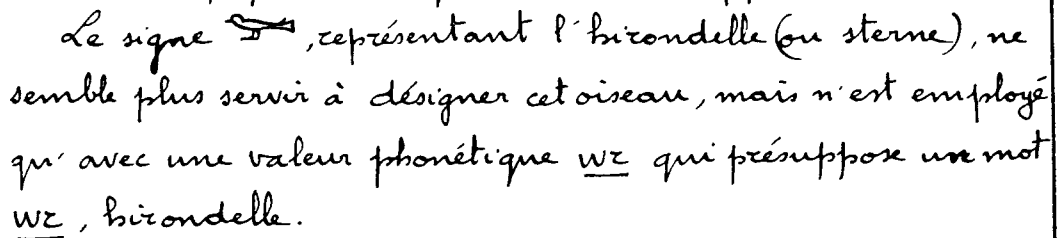 Le signe 𓅨, représentant l'hirondelle (ou sterne), ne
semble plus servir à désigner cet oiseau, mais n'est employé
qu'avec une valeur phonétique wr qui présuppose un mot
wr, hirondelle.